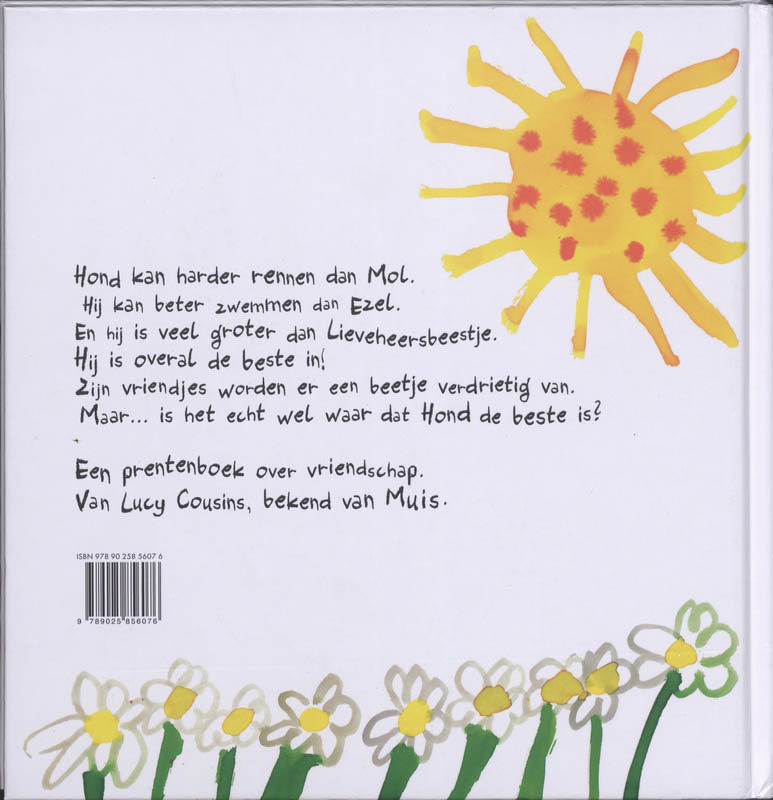 Hond kan harder rennen dan Mol.
Hij kan beter zwemmen dan Ezel.
En hij is veel groter dan Lieveheersbeestje.
Hij is overal de beste in!
Zijn vriendjes worden er een beetje verdrietig van.
Maar... is het echt wel waar dat Hond de beste is?
Een prentenboek over vriendschap.
Van Lucy Cousins, bekend van Muis.
ISBN 978 90 258 5607 6
9 789025 856076